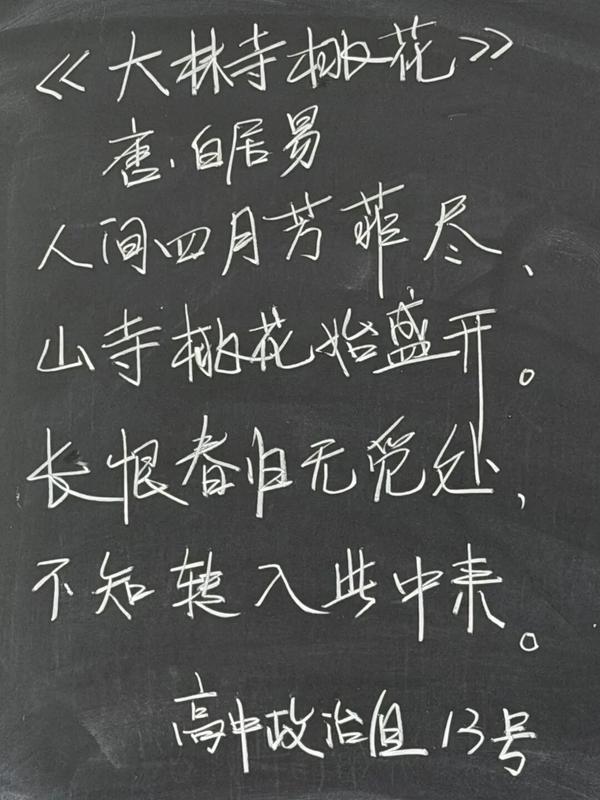 《大林寺桃花》
唐·白居易
人间四月芳菲尽、
山寺桃花始盛开。
长恨春归无觅处,
不知转入此中来。
高中政治组 13号